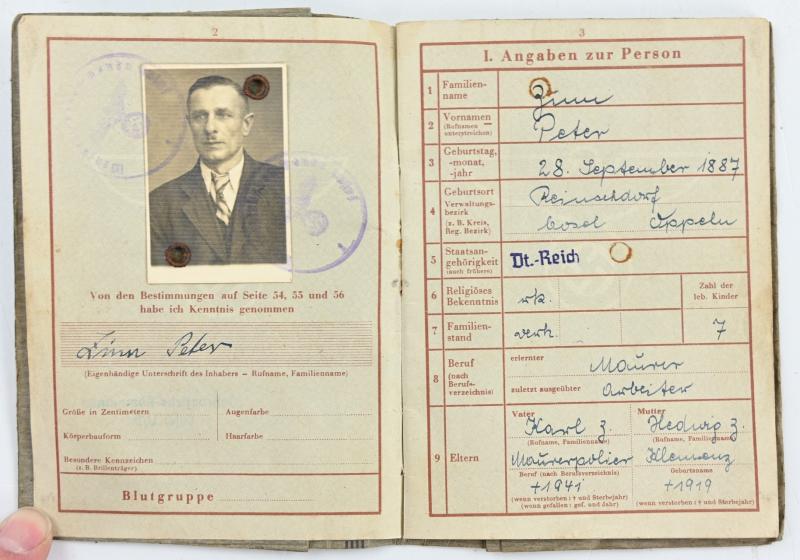 2
Von den Bestimmungen auf Seite 54, 55 und 56
habe ich Kenntnis genommen
Zinn Peter
(Eigenhändige Unterschrift des Inhabers – Rufname, Familienname)
Größe in Zentimetern
Augenfarbe
Körperbauform
Haarfarbe
Besondere Kennzeichen
(z. B. Brillenträger)
Blutgruppe
3
I. Angaben zur Person
1 Familien-
name
Zinn
2 Vornamen
(Rufnamen
unterstreichen)
Peter
3 Geburtstag,
-monat,
-jahr
28. September 1887
4 Geburtsort
Verwaltungs-
bezirk
(z. B. Kreis,
Reg. Bezirk)
Reinschdorf
Cosel Oppeln
5 Staatsan-
gehörigkeit
(auch frühere)
Dt.-Reich
6 Religiöses
Bekenntnis
rk.
Zahl der
leb. Kinder
7 Familien-
stand
verh.
7
8 Beruf
(nach
Berufs-
verzeichnis)
erlernter
Maurer
zuletzt ausgeübter
Arbeiter
9 Eltern
Vater
Karl Z.
(Rufname, Familienname)
Maurerpolier
Beruf (nach Berufsverzeichnis)
+ 1941
(wenn verstorben: † und Sterbejahr)
(wenn gefallen: gef. und Jahr)
Mutter
Hedwig Z.
(Rufname, Familienname)
Klemenz
Geburtsname
+ 1919
(wenn verstorben: † und Sterbejahr)